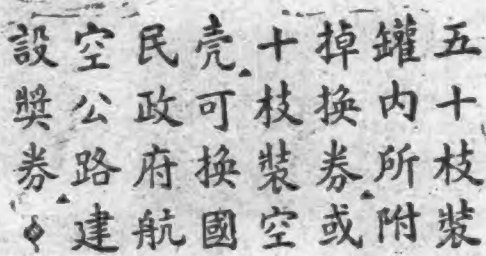 五十枝裝
罐內所附
掉換券或
十枝裝空
壳可換國
民政府航
空公路建
設獎券